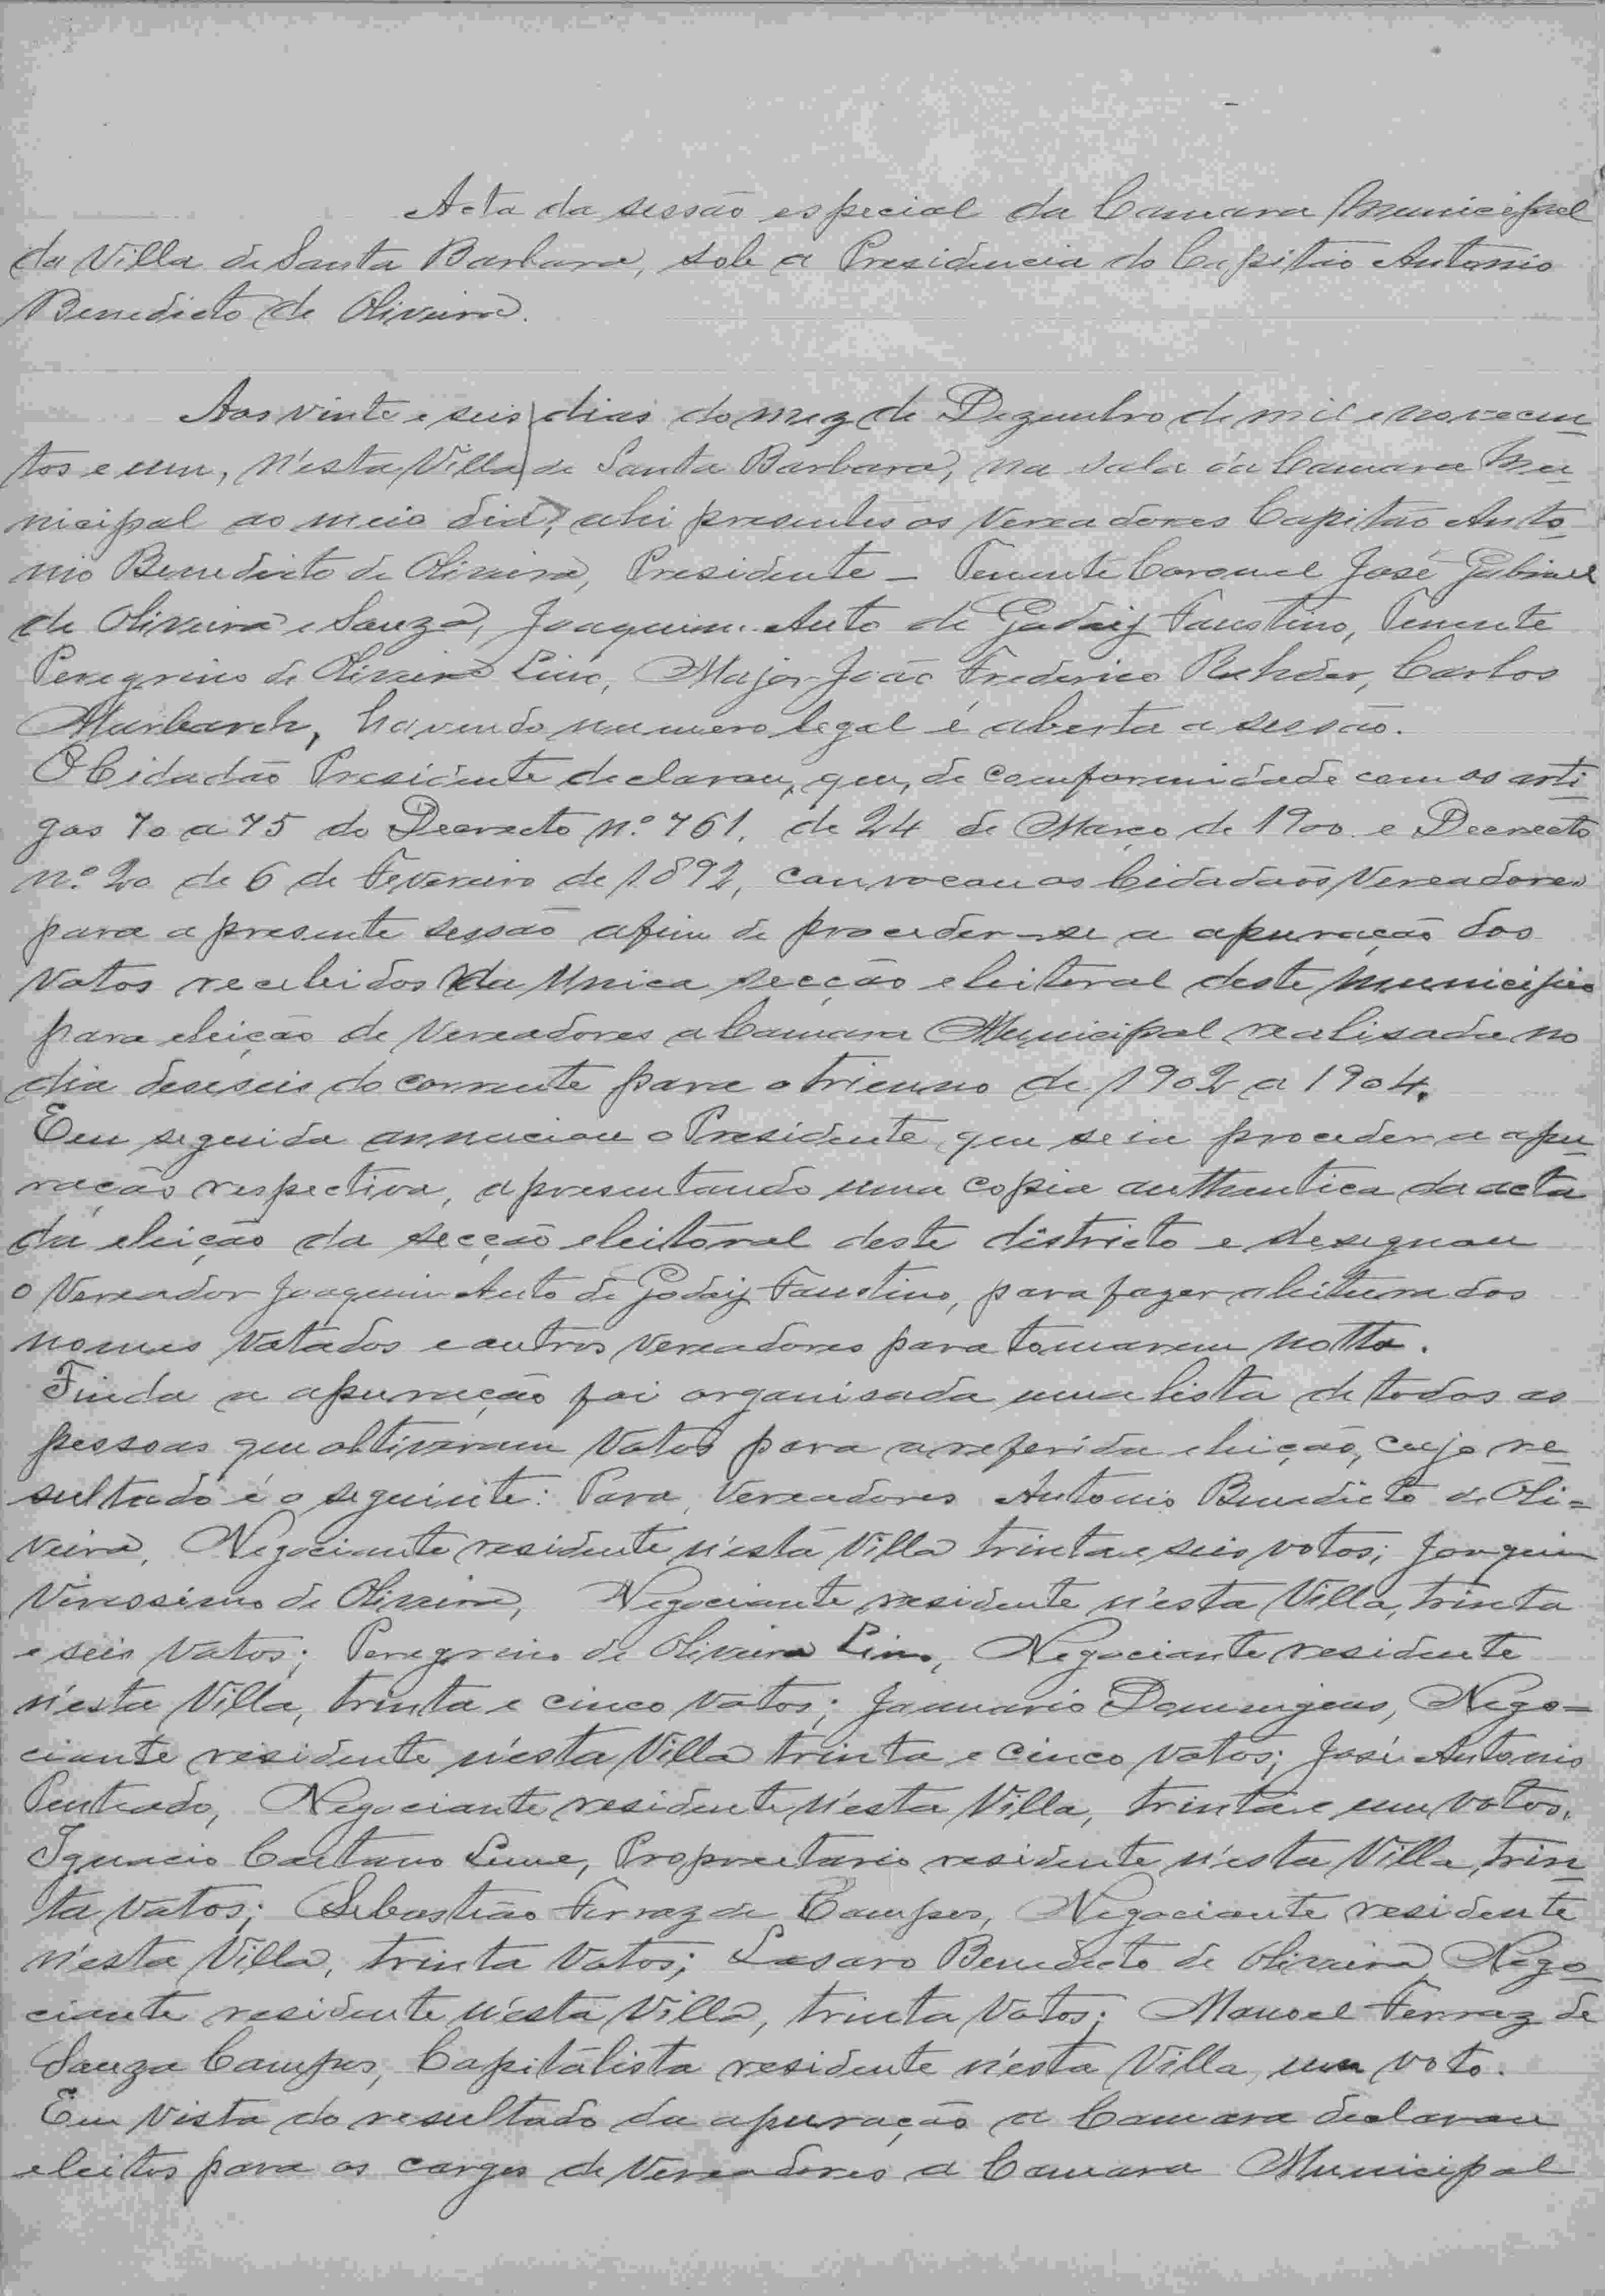 Acta da sessão especial da Camara Municipal
da Villa de Santa Barbara, sob a Presidencia do Capitão Antonio
Benedicto de Oliveira.
Aos vinte e seis dias do mez de Dezembro de mil e novecen
tos e um, n'esta Villa de Santa Barbara, na sala da Camara Mu
nicipal ao meio dia, ahi presentes os Vereadores Capitão Anto
nio Benedicto de Oliveira, Presidente – Tenente Coronel José Gabriel
de Oliveira e Souza, Joaquim Auto de Godoy Faustino, Tenente
Peregrino de Oliveira Lino, Major João Frederico Rehder, Carlos
havendo numero legal é aberta a sessão.
O Cidadão Presidente declarou, que, de comformidade com os arti
gos 70 a 75 do Decrecto n.º 761, de 24 de Março de 1900 e Decrecto
n.º 20 de 6 de Fevereiro de 1892, convocou os Cidadãos Vereadores
para a presente sessão afim de proceder-se a apuração dos
votos recebidos da Unica secção eleitoral deste municipio
para eleição de Vereadores a Camara Municipal realisada no
dia deseseis do corrente para o trienno de 1902 a 1904.
Em seguida annuciou o Presidente, que se ia proceder a apu
ração respectiva, apresentando uma copia authentica da acta
da eleição da secção eleitoral deste districto e designou
o Vereador Joaquim Auto de Godoy Faustino, para fazer a leitura dos
nomes votados e outros vereadores para tomarem notta.
Finda a apuração foi organisada uma lista de todos as
pessoas que obtiveram votos para a referida eleição, cujo re
sultado é o seguinte: Para Vereadores Antonio Benedicto de Oli=
veira, Negociante residente n'esta Villa trinta e seis votos; Joaquim
Verissimo de Oliveira, Negociante residente n'esta Villa, trinta
e seis votos; Peregrino de Oliveira Lino, Negociante residente
n'esta Villa, trinta e cinco votos; Januario Domingues, Nego=
ciante residente n'esta Villa trinta e cinco votos; José Antonio
Penteado, Negociante residente n'esta Villa, trinta e um votos,
Ignacio Caetano Leme, Proprietario residente n'esta Villa, trin
ta votos; Sebastião Ferraz de Campos, Negociante residente
n'esta Villa, trinta votos; Lasaro Benedicto de Oliveira Nego
ciante residente n'esta Villa, trinta votos; Manoel Ferraz de
Souza Campos, Capitalista residente n'esta Villa, um voto.
Em vista do resultado da apuração a Camara declarou
eleitos para os cargos de Vereadores a Camara Municipal